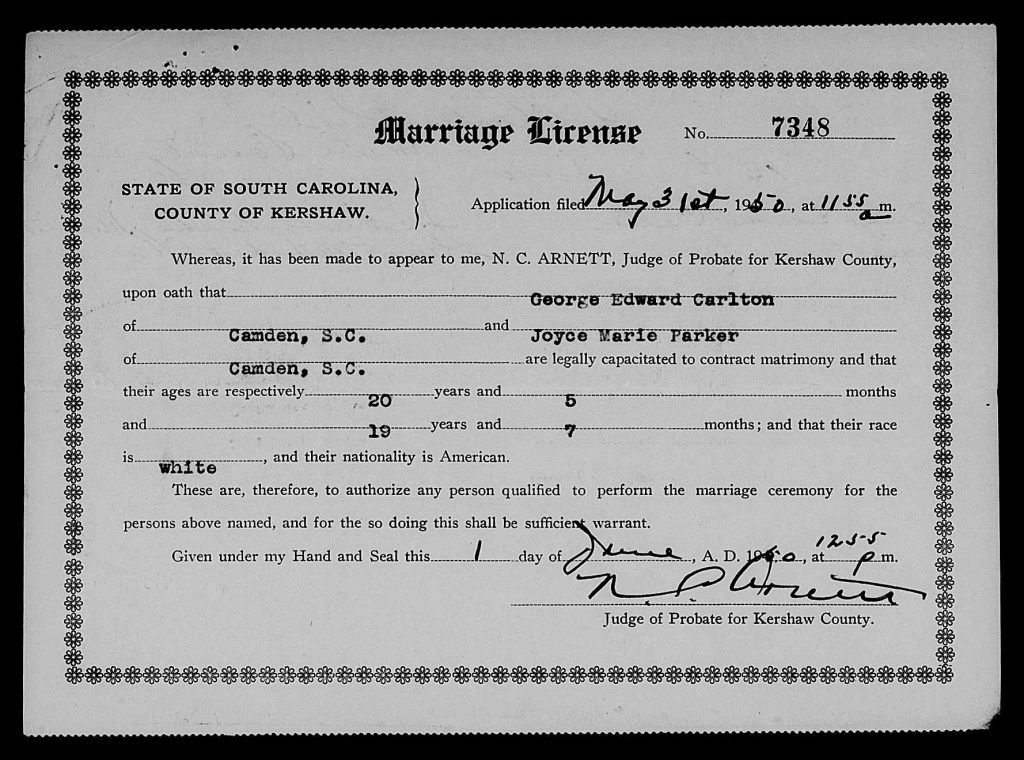 Marriage License No. 7348
STATE OF SOUTH CAROLINA,
COUNTY OF KERSHAW.
Application filed May 31st, 1950, at 11 55 a m.
Whereas, it has been made to appear to me, N. C. ARNETT, Judge of Probate for Kershaw County,
upon oath that George Edward Carlton
of Camden, S.C. and Joyce Marie Parker
of Camden, S.C. are legally capacitated to contract matrimony and that
their ages are respectively 20 years and 5 months
and 19 years and 7 months; and that their race
is white, and their nationality is American.
These are, therefore, to authorize any person qualified to perform the marriage ceremony for the
persons above named, and for the so doing this shall be sufficient warrant.
Given under my Hand and Seal this 1 day of June, A. D. 1950, at 12 55 p m.
N. C. Arnett
Judge of Probate for Kershaw County.